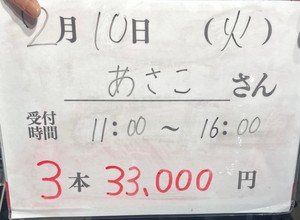 2月10日（火）
あさこ さん
受付時間 11:00 ～ 16:00
3本 33,000円